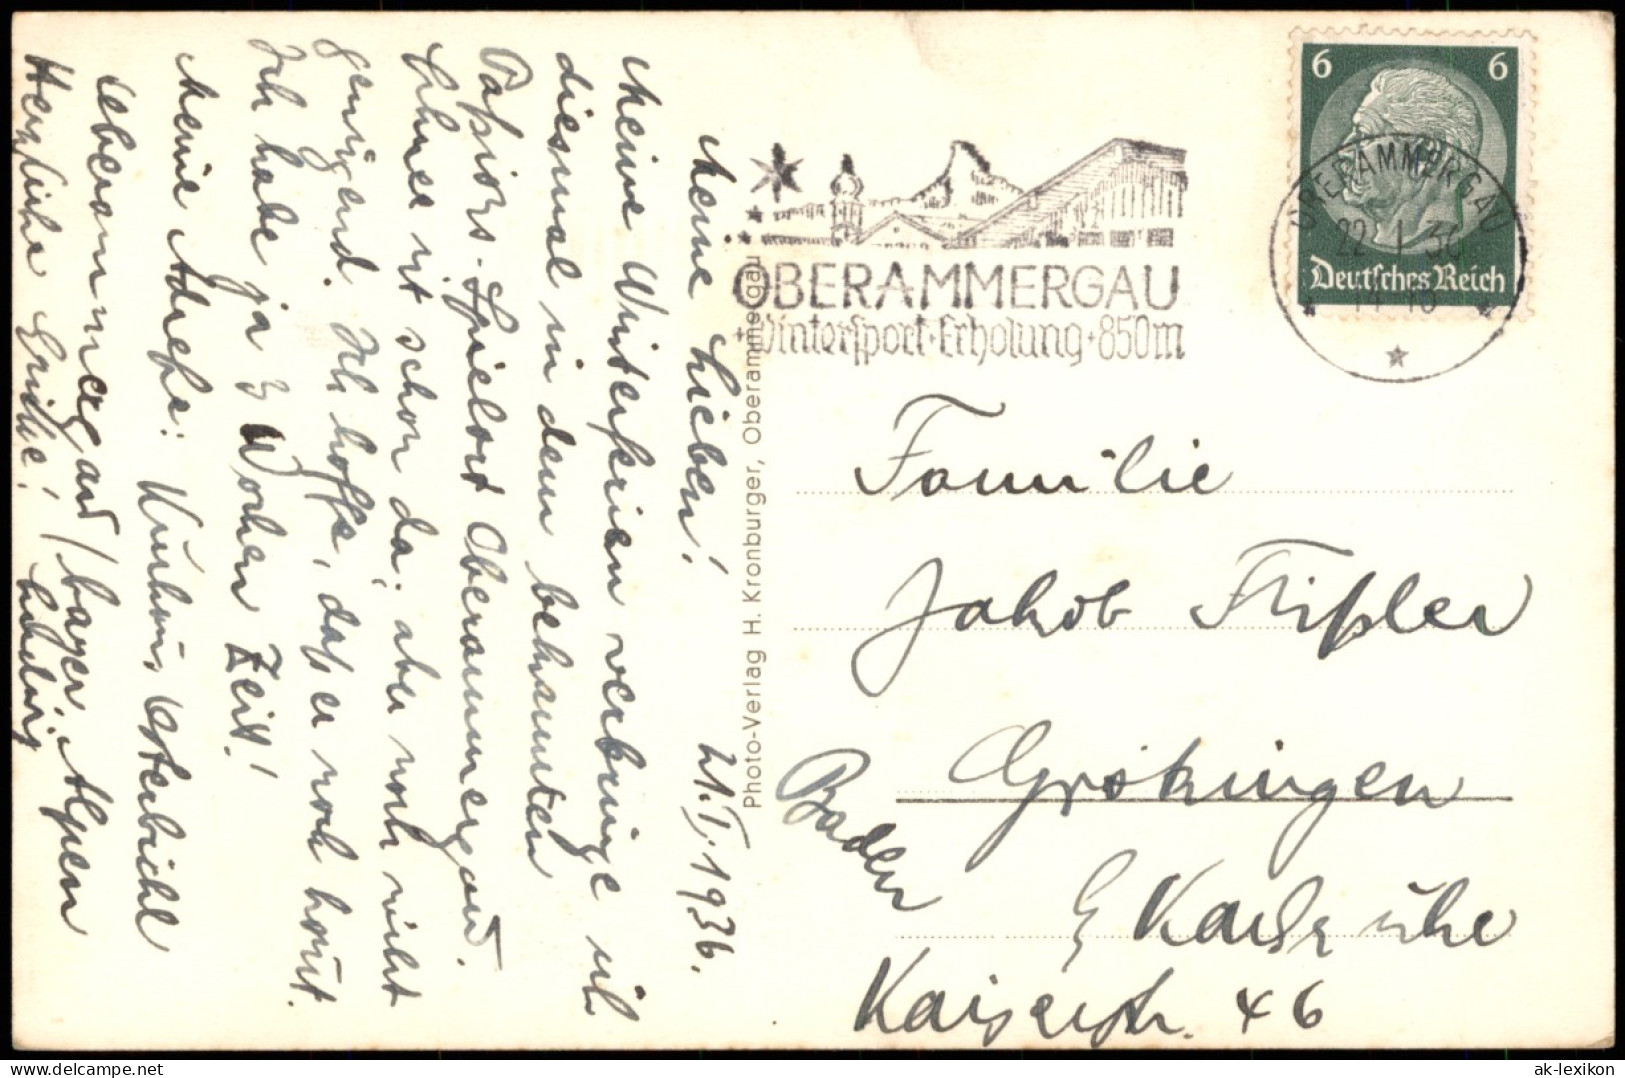 21.I.1936.
Meine Lieben!
Meine Winterferien verbringe ich
diesmal in dem bekannten
Paßions-Spielort Oberammergau.
Schnee ist schon da, aber noch nicht
genügend. Ich hoffe, daß er noch kommt.
Ich habe ja 3 Wochen Zeit!
Meine Adreße:
Oberammergau / bayer. Alpen
Herzliche Grüße!
Photo-Verlag H. Kronburger, Oberammergau
OBERAMMERGAU
Wintersport·Erholung·850m
6 6
Deutsches Reich
OBERAMMERGAU
22. 1. 36
Familie
Jakob Fißler
Grötzingen
Baden
b/ Karlsruhe
Kaiserstr. 46
ak-lexikon
delcampe.net